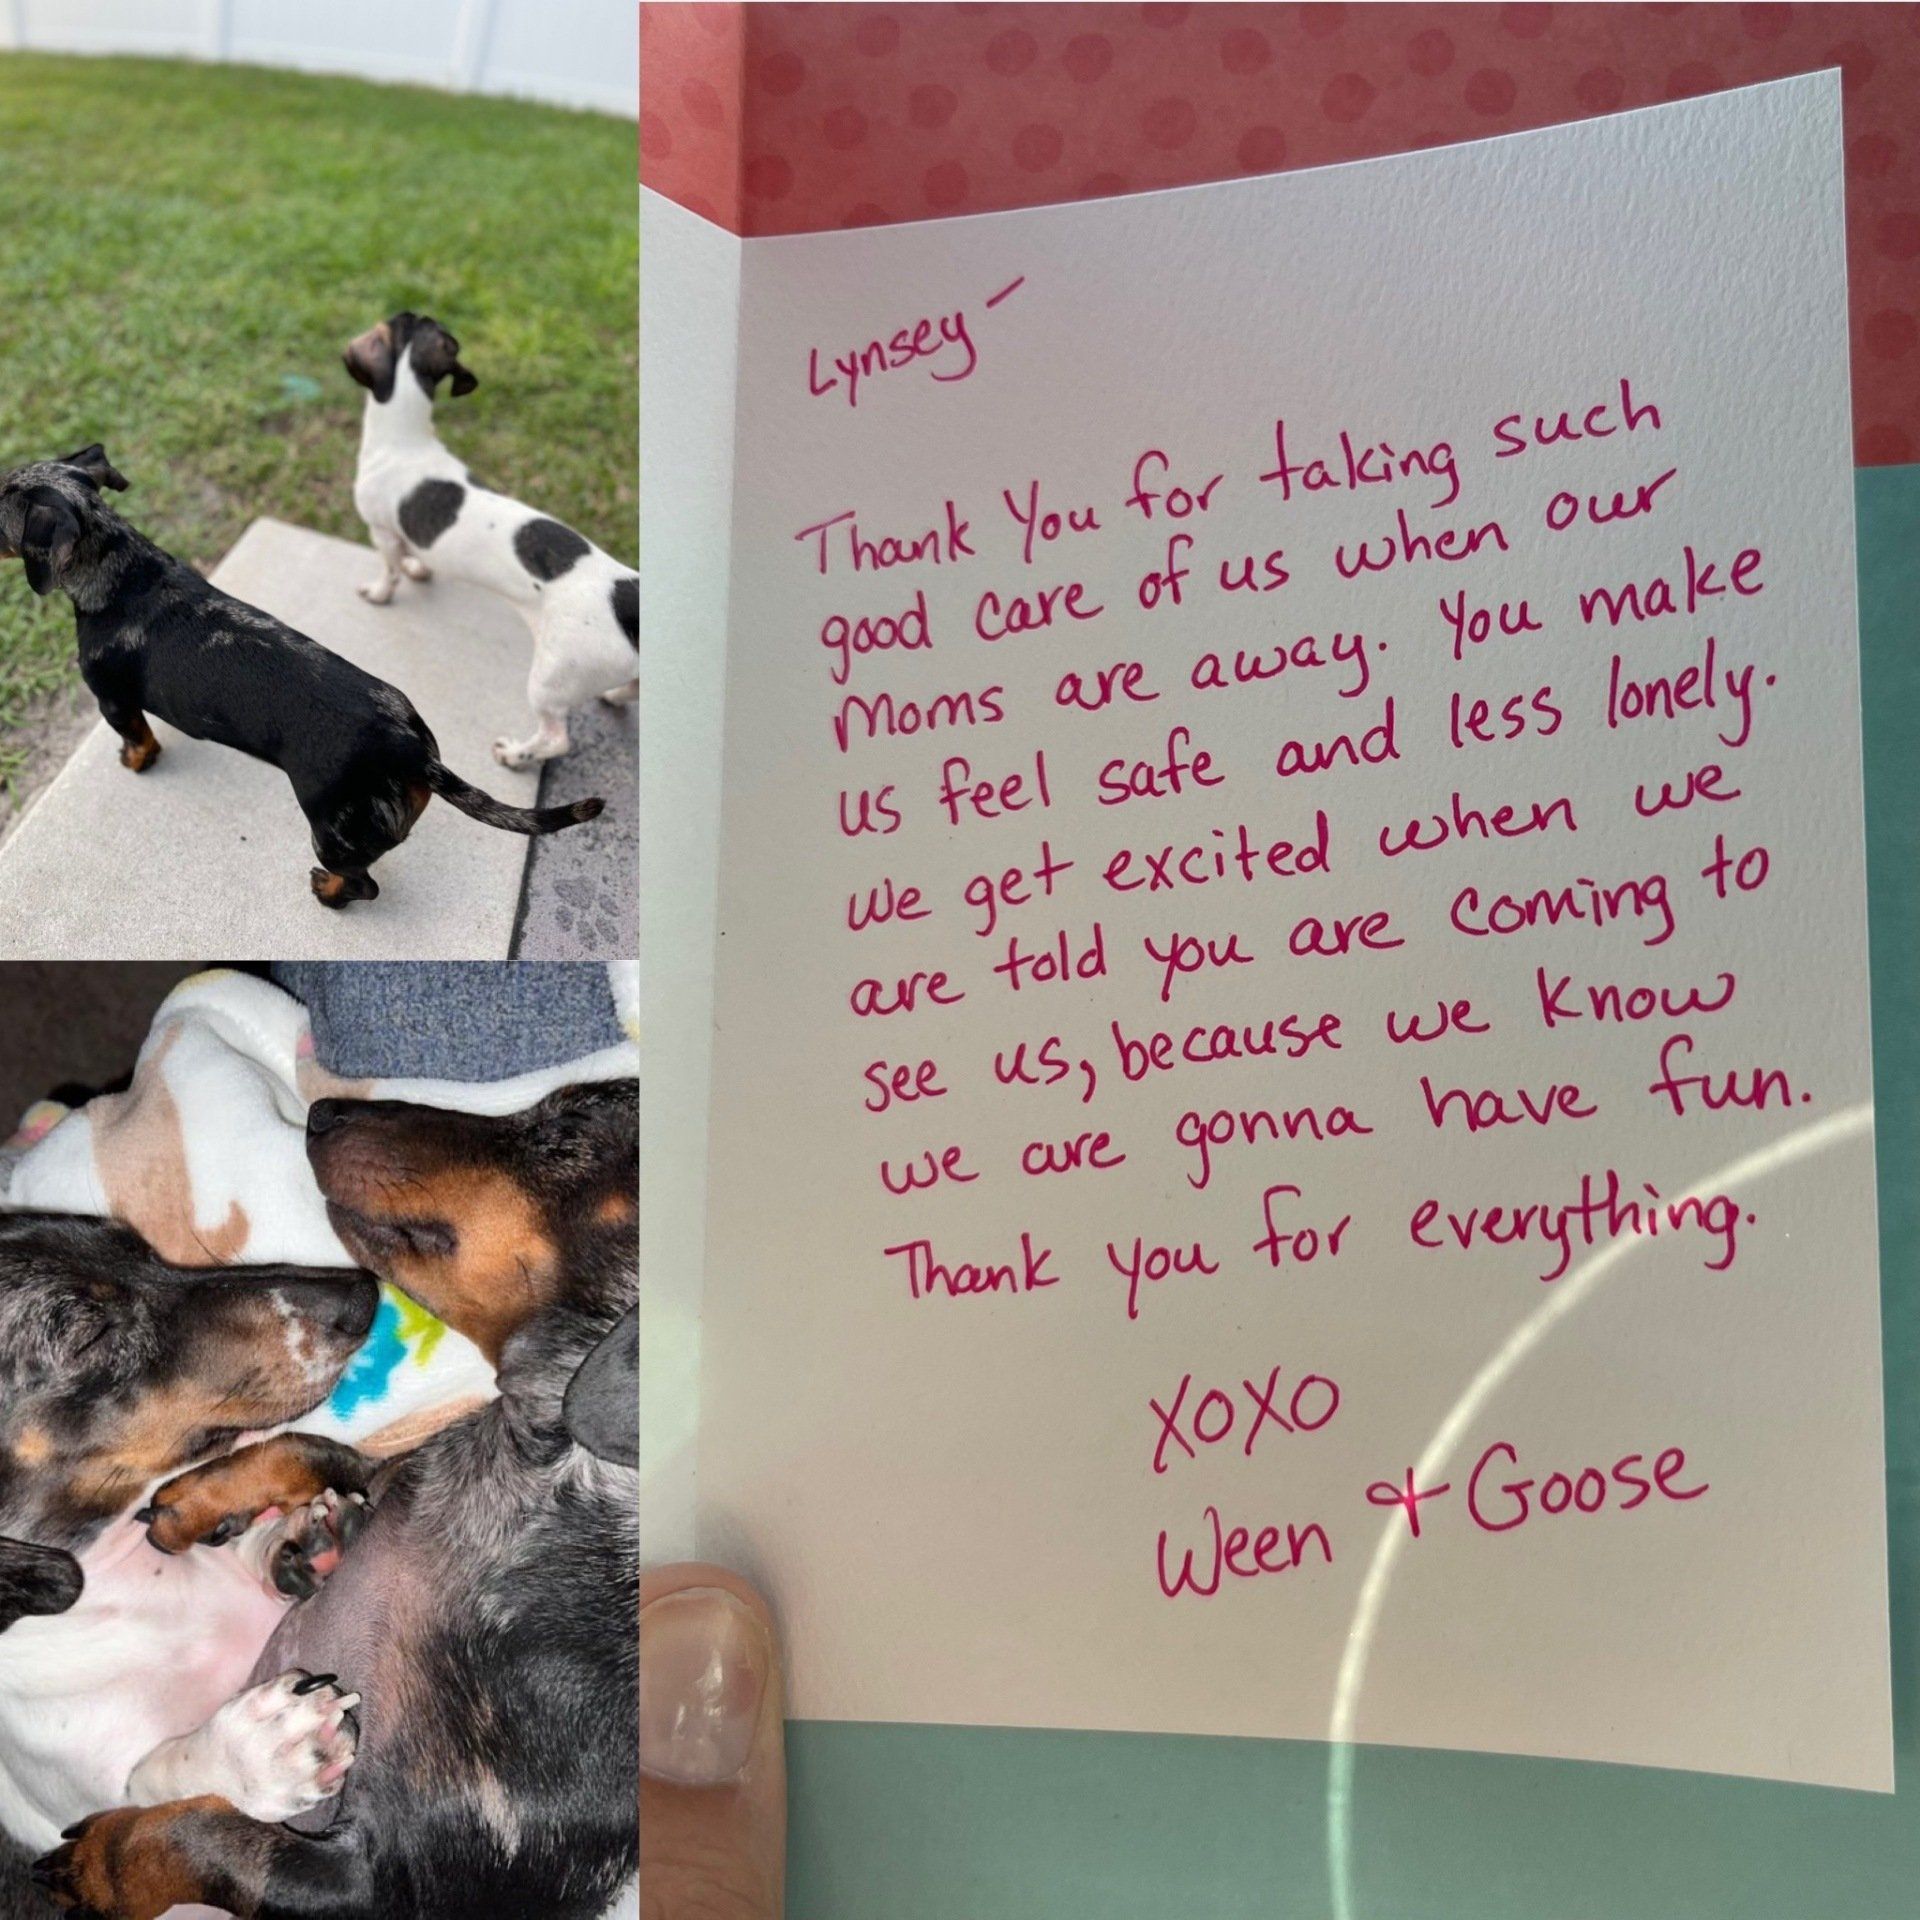 Lynsey -
Thank You for taking such
good care of us when our
Moms are away. You make
us feel safe and less lonely.
We get excited when we
are told you are coming to
see us, because we know
we are gonna have fun.
Thank you for everything.
XOXO
Ween & Goose